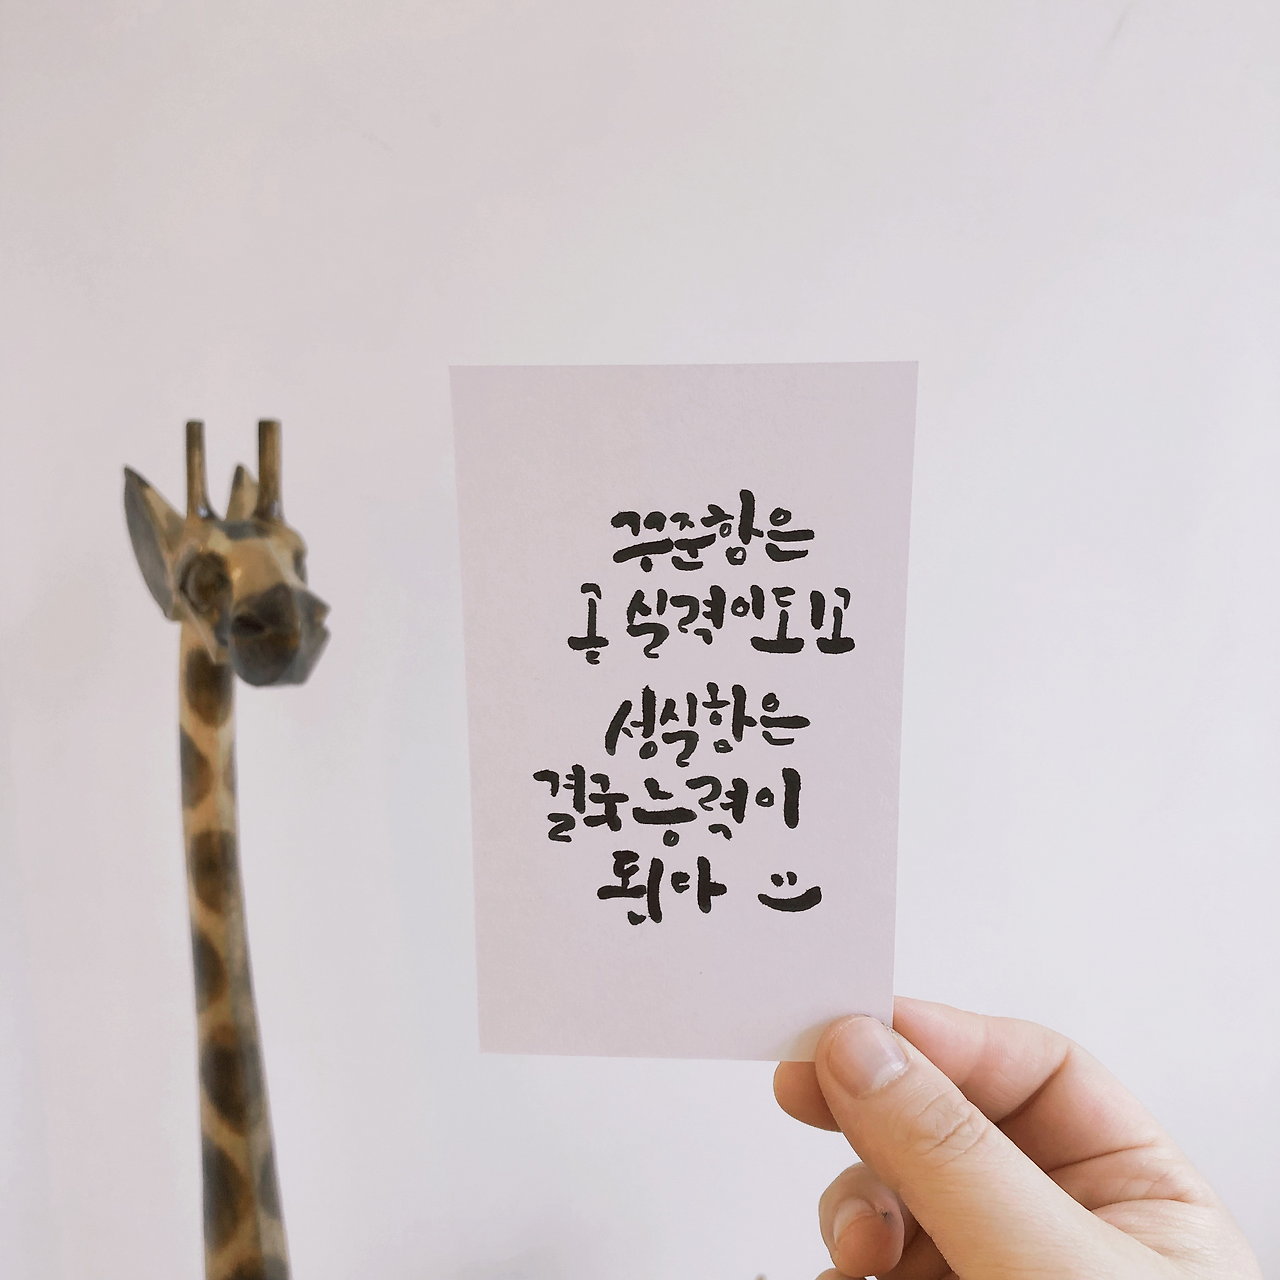 꾸준함은
곧 실력이되고
성실함은
결국 능력이
된다